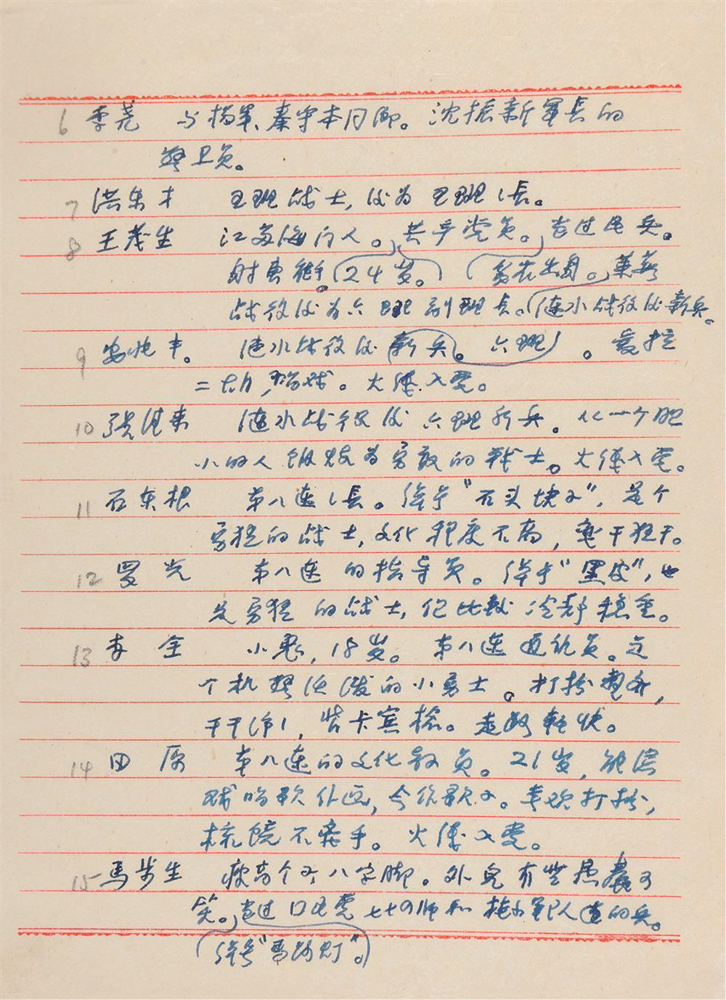 6 李尧 与杨军、秦守本同乡。沈振新军长的
警卫员。
7 洪东才 王班战士,后为王班班长。
8 王茂生 江苏海门人。共产党员。当过民兵。
射击 (24岁。)(贫农出身。莱芜
战役后为六班副班长。(涟水战役后新兵。
9 安兆丰。 涟水战役后新兵。六班 。爱拉
二胡,唱戏。火线入党。
10 张华东 涟水战役后六班新兵。从一个胆
小的人锻炼为勇敢的战士。火线入党。
11 石东根 第八连连长。绰号“石头块子”,是个
勇猛的战士,文化程度不高,蛮干猛干。
12 罗光 第八连的指导员。绰号“黑皮”,也
是勇猛的战士,但比较冷静稳重。
13 李全 小鬼,18岁。第八连通讯员。是
个机智活泼的小勇士。打扮
干干净净,背卡宾枪。走路轻快。
14 田原 第八连的文化教员。21岁,能演
戏唱歌作画,会作歌子。喜欢打扮,
梳镜不离手。火线入党。
15 馬步生 瘦高个子八字脚。外貌有些愚蠢可
笑。当过国民党七十四师和 的兵。
(绰号“马路灯”。)